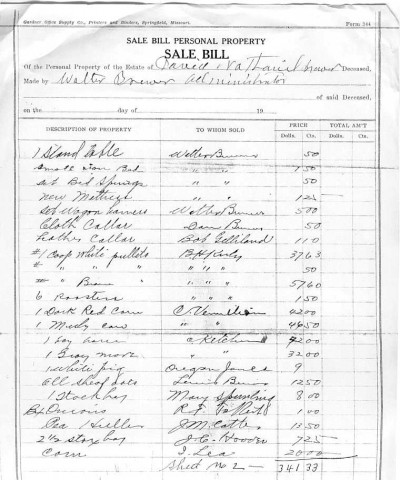 Gardner Office Supply Co., Printers and Binders, Springfield, Missouri. Form 344
SALE BILL PERSONAL PROPERTY
SALE BILL
Of the Personal Property of the Estate of David Nathaniel Deceased,
Made by Walter Brewer Administrator
of said Deceased,
on the day of 19
DESCRIPTION OF PROPERTY TO WHOM SOLD PRICE TOTAL AM'T
Dolls. Cts. Dolls. Cts.
1 Stand Table 50
Small Iron Bed " " 1 50
set Bed Springs " " 50
new " " 1 25
set Wagon harness Walter 5 00
Cloth Collar Brewer 50
Leather Collar Bob Gilliland 1 10
#1 Coop White pullets 37 63
# " " " " " " 50
# " " " " 57 60
6 Roosters " " 1 50
1 Dark Red Cow 42 00
1 cow " " 46 50
1 bay horse Ketchum
1 Gray mare " " 32 00
1 White pig Oregon Jones 9
Sheaf oats 12 50
1 Stack hay Mary 8 00
Onions 1 00
Pea Huller J M 13 50
2 1/2 hay J. C. 7 25
Corn I. Lea 20 00
Shed No 2 — 341 33